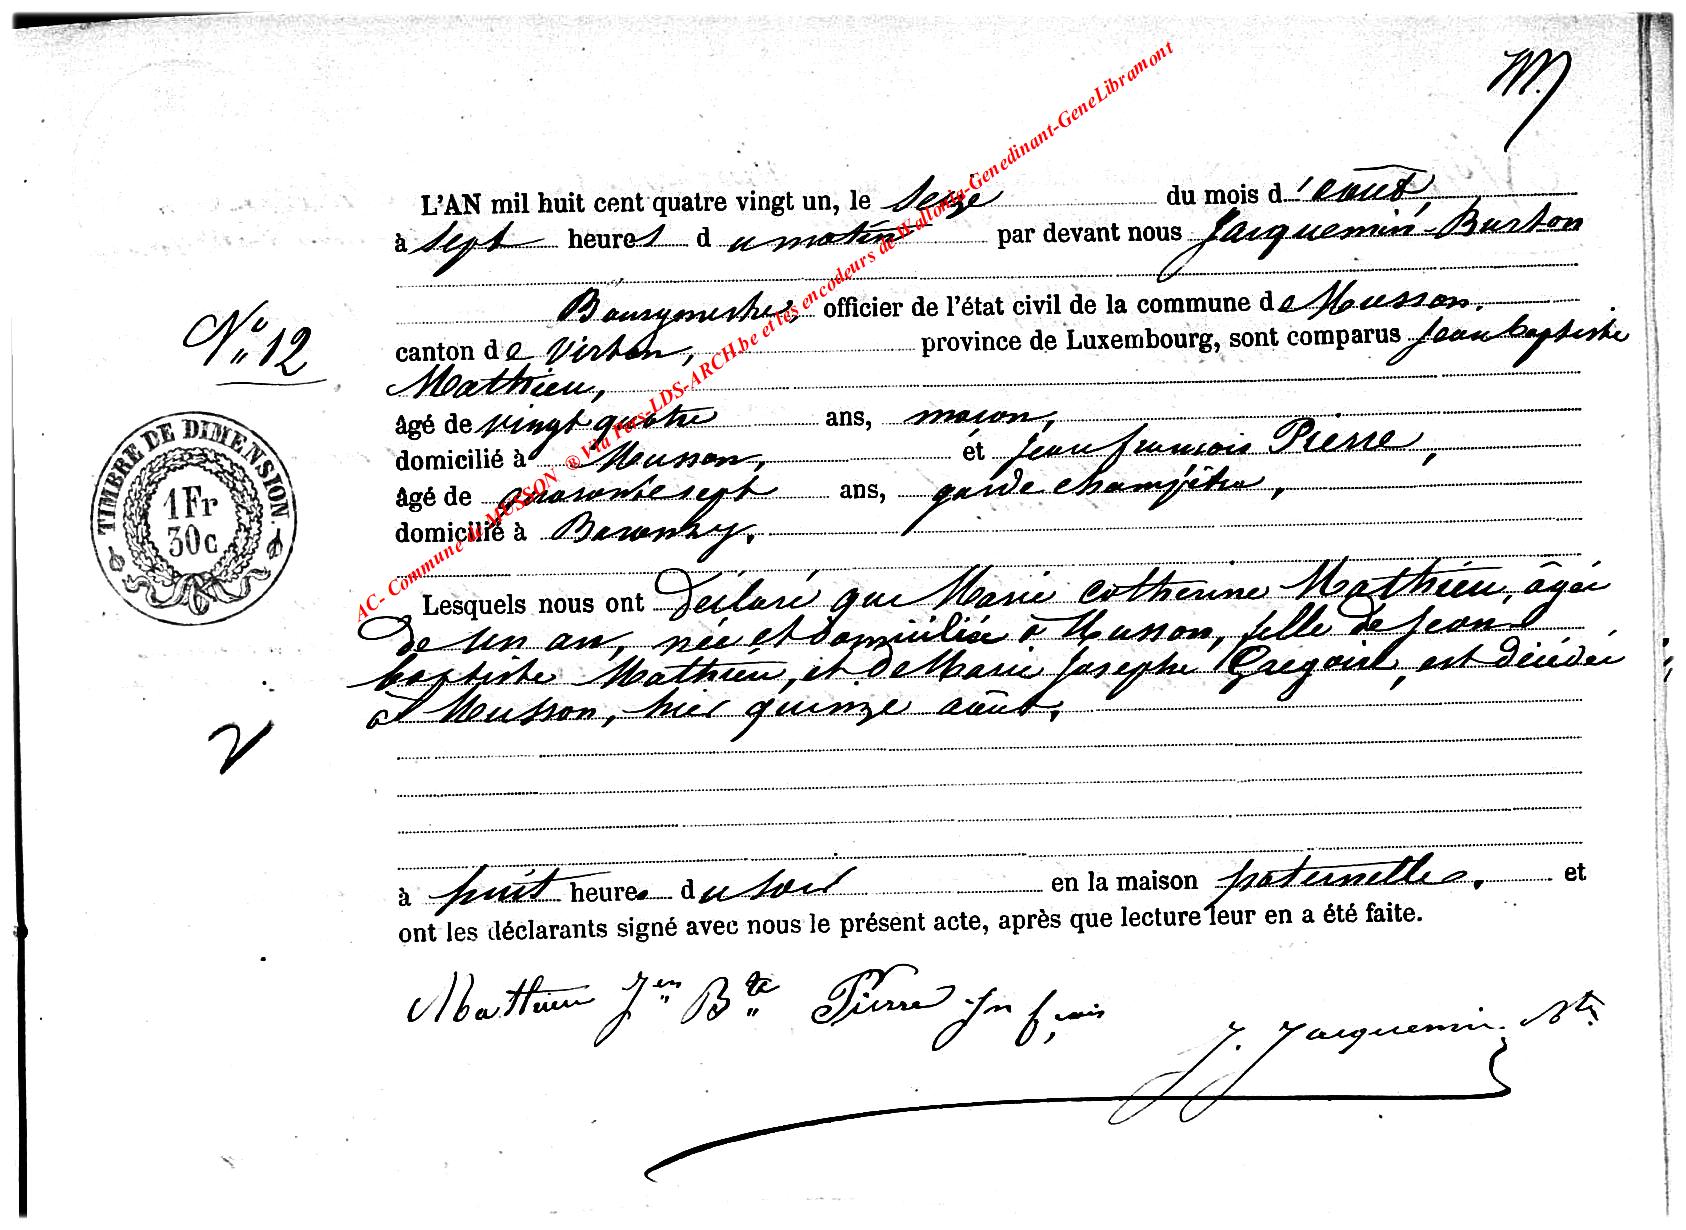 L'AN mil huit cent quatre vingt un, le seize du mois d'août,
à sept heures du matin par devant nous Jacquemin-Burton
Bourgmestre, officier de l'état civil de la commune de Musson,
N° 12
canton de Virton, province de Luxembourg, sont comparus Jean baptiste
Mathieu,
âgé de vingt quatre ans, maçon,
domicilié à Musson, et Jean françois Pierre,
âgé de quarante sept ans, garde champêtre,
domicilié à Baranzy.
TIMBRE DE DIMENSION.
1 Fr
30 c
AC- Commune de MUSSON ® Via Pars-LDS-ARCH.be et les encodeurs de Wallonia-Genedinant-GeneLibramont
Lesquels nous ont déclaré que Marie Catherine Mathieu, âgée
de un an, née et domiciliée à Musson, fille de Jean
baptiste Mathieu, et de Marie Josephe Grégoire, est décédée
à Musson, hier quinze août,
à huit heures du soir en la maison paternelle, et
ont les déclarants signé avec nous le présent acte, après que lecture leur en a été faite.
Mathieu Jen Bte Pierre Jn fçois
J. Jacquemin. Btn